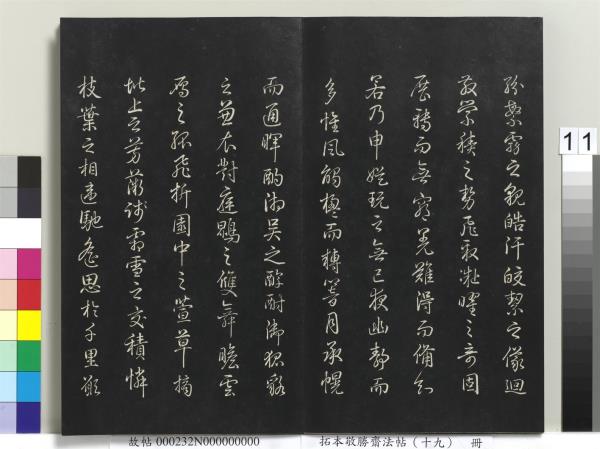 紛繁霧之貌皓汗皎潔之儀迴
散縈積之勢飛聚凝曜之奇固
展轉而無窮羌難得而備知
若乃申娛玩之無已夜幽靜而
多懷風觸楹而轉響月承幌
而通暉酌湘吳之醇酎御狐貉
之兼衣對庭鵾之雙舞瞻雲
鴈之孤飛折園中之萱草摘
階上之芳薇踐霜雪之交積憐
枝葉之相違馳遙思於千里願
11
故帖 000232N000000000
拓本敬勝齋法帖(十九) 冊